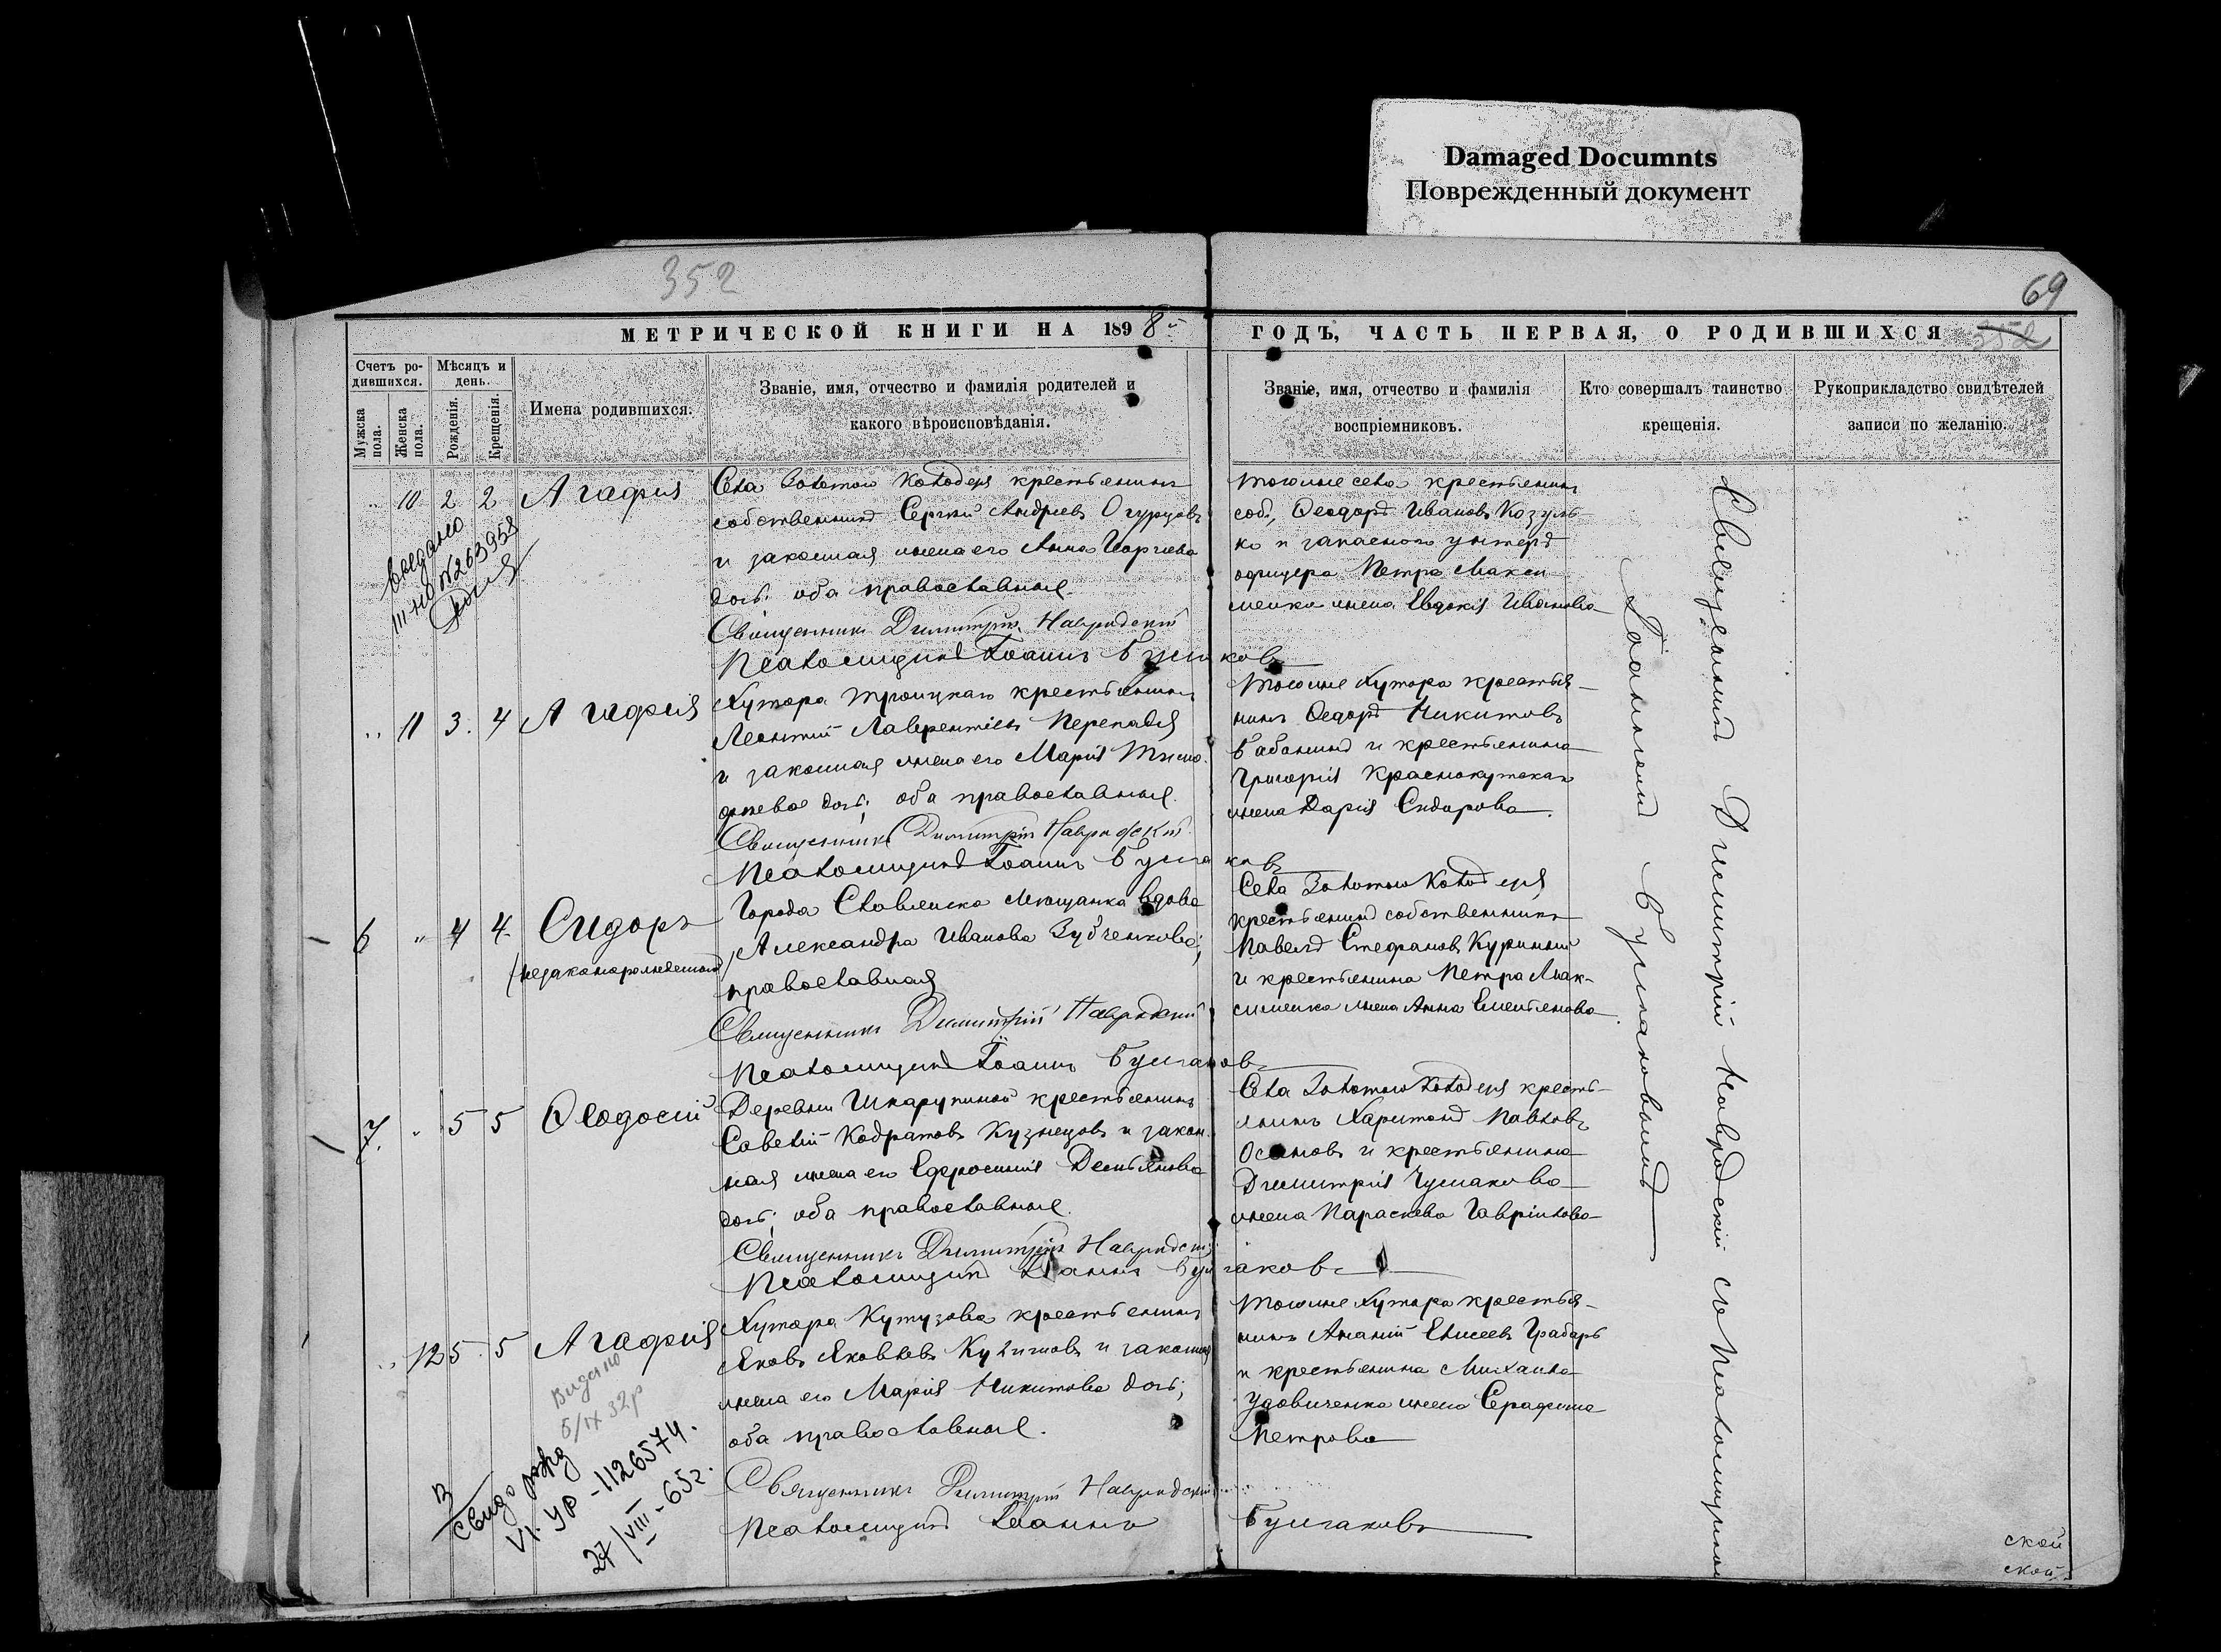 Damaged Documnts
Поврежденный документ
352
69
МЕТРИЧЕСКОЙ КНИГИ НА 1898
ГОДЪ, ЧАСТЬ ПЕРВАЯ, О РОДИВШИХСЯ
352
Счетъ родившихся.
Мужска пола.
Женска пола.
Мѣсяцъ и день.
Рожденія.
Крещенія.
Имена родившихся.
Званіе, имя, отчество и фамилія родителей и
какого вѣроисповѣданія.
Званіе, имя, отчество и фамилія
воспріемниковъ.
Кто совершалъ таинство
крещенія.
Рукоприкладство свидѣтелей
записи по желанію.
10 2 2 Агафія
Села Золотого Колодезя крестьянинъ
собственникъ Сергій Андреевъ Огурцовъ
и законная жена его Анна Георгіева
дочь: оба православные.
Священникъ Димитрій Навродскій
Псаломщикъ Іоаннъ Булгаковъ
тогоже села крестьянинъ
соб., Ѳеодоръ Ивановъ Козуль-
ко и запасного унтеръ
офицера Петра Макси-
менка жена Евдокія Иванова
№ 263958
11 3 4 Агафія
Хутора Троицкаго крестьянинъ
Леонтій Лаврентіевъ Перепадя
и законная жена его Марія Тимо-
фѣева дочь; оба православные.
Священникъ Димитрій Навродскій
Псаломщикъ Іоаннъ Булгаковъ
тогоже хутора крестья-
нинъ Ѳедоръ Никитовъ
Бабанинъ и крестьянина
Григорія Краснокутскаго
жена Дарія Сидорова.
6 " 4 4 Сидоръ
(незаконорожденный)
Города Славянска мѣщанка вдова
Александра Иванова Зубченкова;
православная
Священникъ Димитрій Навродскій
Псаломщикъ Іоаннъ Булгаковъ
Села Золотого Колодезя
крестьянинъ собственникъ
Павелъ Стефановъ Куринный
и крестьянина Петра Мак-
сименка жена Анна Емельянова
7. " 5 5 Ѳеодосій
Деревни Шкарупиной крестьянинъ
Савелій Кодратовъ Кузнецовъ и закон-
ная жена его Ефросинія Демьянова
дочь; оба православные.
Священникъ Димитрій Навродскій
Псаломщикъ Іоаннъ Булгаковъ
Села Золотого Колодезя кресть-
янинъ Харитонъ Павловъ
Осиповъ и крестьянина
Димитрія Чумакова
жена Параскева Гавріилова
12 5 5 Агафія
Хутора Кутузова крестьянинъ
Яковъ Яковлевъ и законная
жена его Марія Никитова дочь;
оба православные.
Священникъ Димитрій Навродскій
Псаломщикъ Іоаннъ Булгаковъ
тогоже хутора крестья-
нинъ Ананій Елисеевъ Грабарь
и крестьянина Михаила
Удовиченка жена Серафима
Петрова
Видано
5/IX 32р
VI. УР - 1126574.
27/VIII - 65г.
Священникъ Димитрій Навродскій съ Псаломщикомъ
Іоанномъ Булгаковымъ
ской
ской